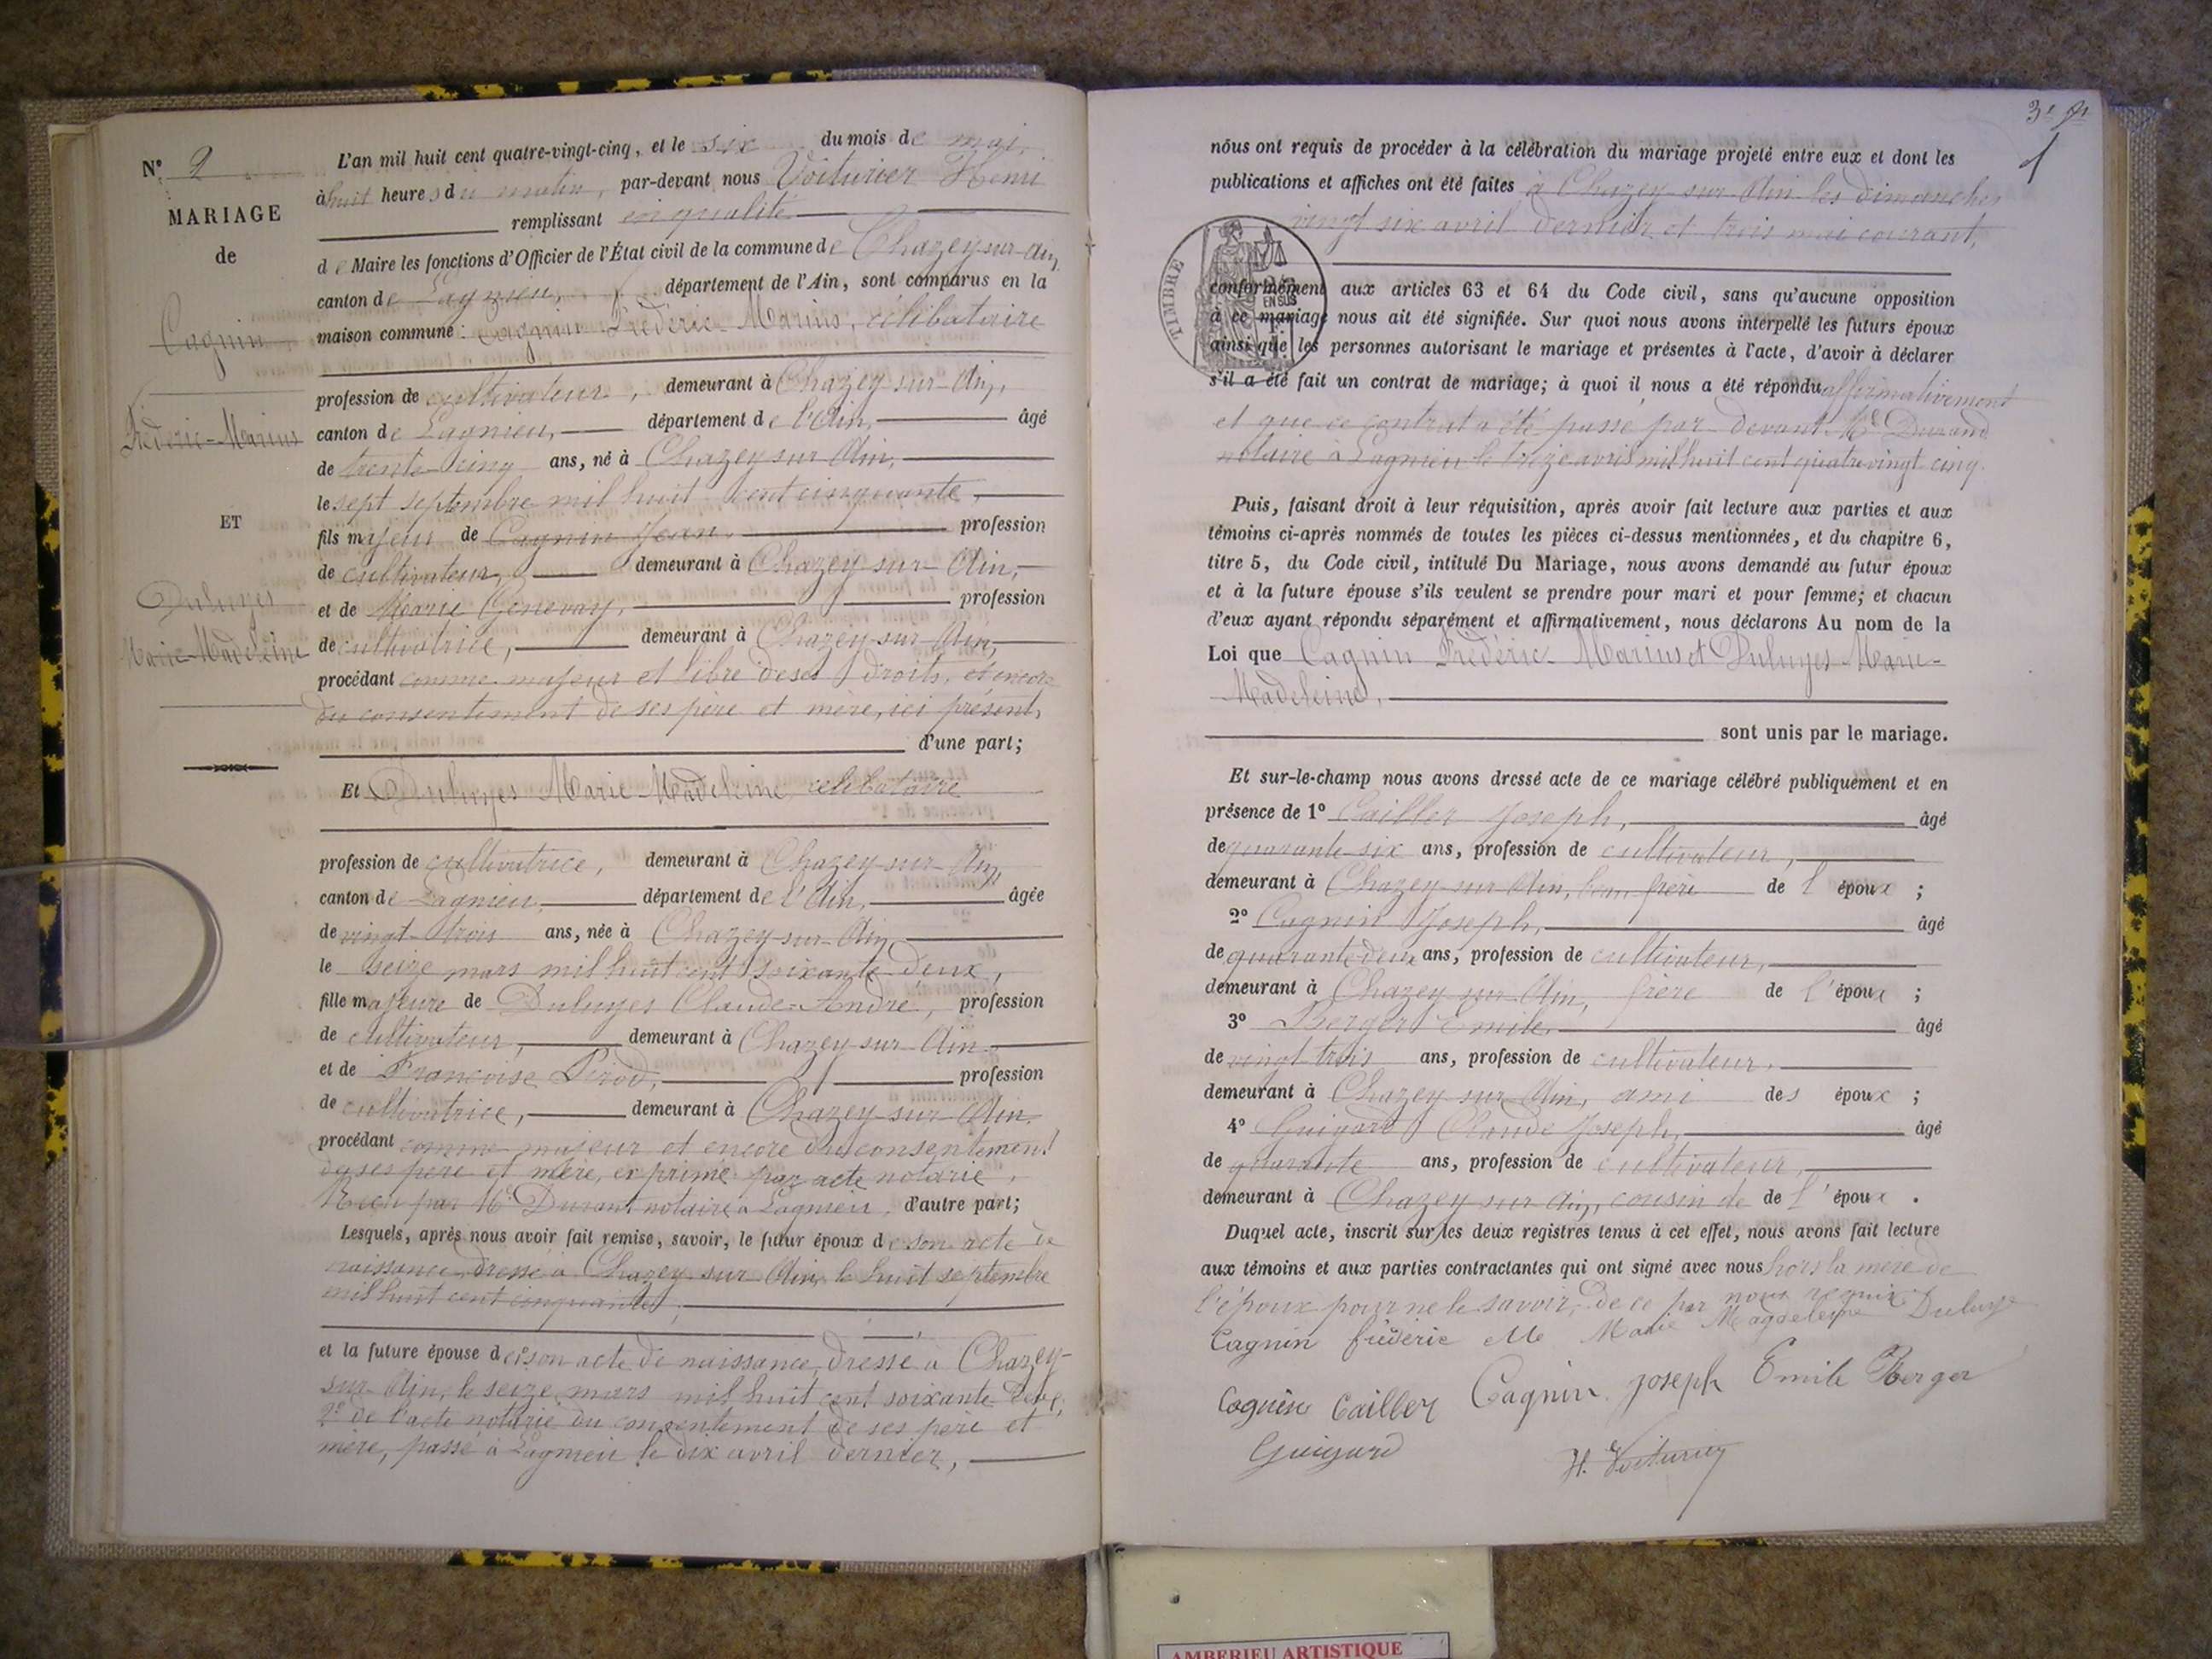 N° 2
MARIAGE
de
Cagnin
Frédéric-Marius
ET
Duluyes
Marie-Madeleine
L'an mil huit cent quatre-vingt-cinq, et le six du mois de mai,
à huit heures du matin, par-devant nous Voiturier Henri
remplissant en qualité
de Maire les fonctions d'Officier de l'État civil de la commune de Chazey-sur-Ain,
canton de Lagnieu, département de l'Ain, sont comparus en la
maison commune : Cagnin Frédéric-Marius, célibataire
profession de cultivateur, demeurant à Chazey-sur-Ain,
canton de Lagnieu, département de l'Ain, âgé
de trente-cinq ans, né à Chazey sur Ain,
le sept septembre mil huit cent cinquante,
fils majeur de Cagnin Jean, profession
de cultivateur, demeurant à Chazey-sur-Ain,
et de Marie Genevay, profession
de cultivatrice, demeurant à Chazey-sur-Ain,
procédant comme majeur et libre de ses droits, et encore
du consentement de ses père et mère, ici présent,
d'une part;
Et Duluyes Marie-Madeleine célibataire
profession de cultivatrice, demeurant à Chazey-sur-Ain,
canton de Lagnieu, département de l'Ain, âgée
de vingt-trois ans, née à Chazey-sur-Ain,
le seize mars mil huit cent soixante-deux,
fille majeure de Duluyes Claude-André, profession
de cultivateur, demeurant à Chazey-sur-Ain
et de Françoise Pirod, profession
de cultivatrice, demeurant à Chazey-sur-Ain
procédant comme majeur et encore du consentement
de ses père et mère, exprimé par acte notarié,
reçu par Me Durant notaire à Lagnieu, d'autre part;
Lesquels, après nous avoir fait remise, savoir, le futur époux de son acte de
naissance, dressé à Chazey-sur-Ain, le huit septembre
mil huit cent cinquante;
et la future épouse de 1° son acte de naissance, dressé à Chazey-
sur-Ain, le seize mars mil huit cent soixante-deux,
2° de l'acte notarié du consentement de ses père et
mère, passé à Lagnieu le dix avril dernier,
nous ont requis de procéder à la célébration du mariage projeté entre eux et dont les
publications et affiches ont été faites à Chazey-sur-Ain les dimanches
vingt six avril dernier et trois mai courant,
TIMBRE
EN SUS
conformément aux articles 63 et 64 du Code civil, sans qu'aucune opposition
à ce mariage nous ait été signifiée. Sur quoi nous avons interpellé les futurs époux
ainsi que les personnes autorisant le mariage et présentes à l'acte, d'avoir à déclarer
s'il a été fait un contrat de mariage; à quoi il nous a été répondu affirmativement
et que ce contrat a été passé par devant Me Durand
notaire à Lagnieu le treize avril mil huit cent quatre vingt cinq.
Puis, faisant droit à leur réquisition, après avoir fait lecture aux parties et aux
témoins ci-après nommés de toutes les pièces ci-dessus mentionnées, et du chapitre 6,
titre 5, du Code civil, intitulé Du Mariage, nous avons demandé au futur époux
et à la future épouse s'ils veulent se prendre pour mari et pour femme; et chacun
d'eux ayant répondu séparément et affirmativement, nous déclarons Au nom de la
Loi que Cagnin Frédéric-Marius et Duluyes Marie-
Madeleine,
sont unis par le mariage.
Et sur-le-champ nous avons dressé acte de ce mariage célébré publiquement et en
présence de 1° Cailler Joseph, âgé
de quarante-six ans, profession de cultivateur,
demeurant à Chazey-sur-Ain, beau-frère de l'époux ;
2° Cagnin Joseph, âgé
de quarante-deux ans, profession de cultivateur,
demeurant à Chazey sur Ain, frère de l'époux ;
3° Berger Emile, âgé
de vingt-trois ans, profession de cultivateur,
demeurant à Chazey sur Ain, ami des époux ;
4° Guigard Claude Joseph, âgé
de quarante ans, profession de cultivateur,
demeurant à Chazey sur Ain, cousin de de l'époux .
Duquel acte, inscrit sur les deux registres tenus à cet effet, nous avons fait lecture
aux témoins et aux parties contractantes qui ont signé avec nous hors la mère de
l'époux pour ne le savoir, de ce par nous requis.
Cagnin fréderic Marie Magdeleine Duluye
Cagnin Cailler Cagnin Joseph Emile Berger
Guigard H. Voiturier
AMBERIEU ARTISTIQUE